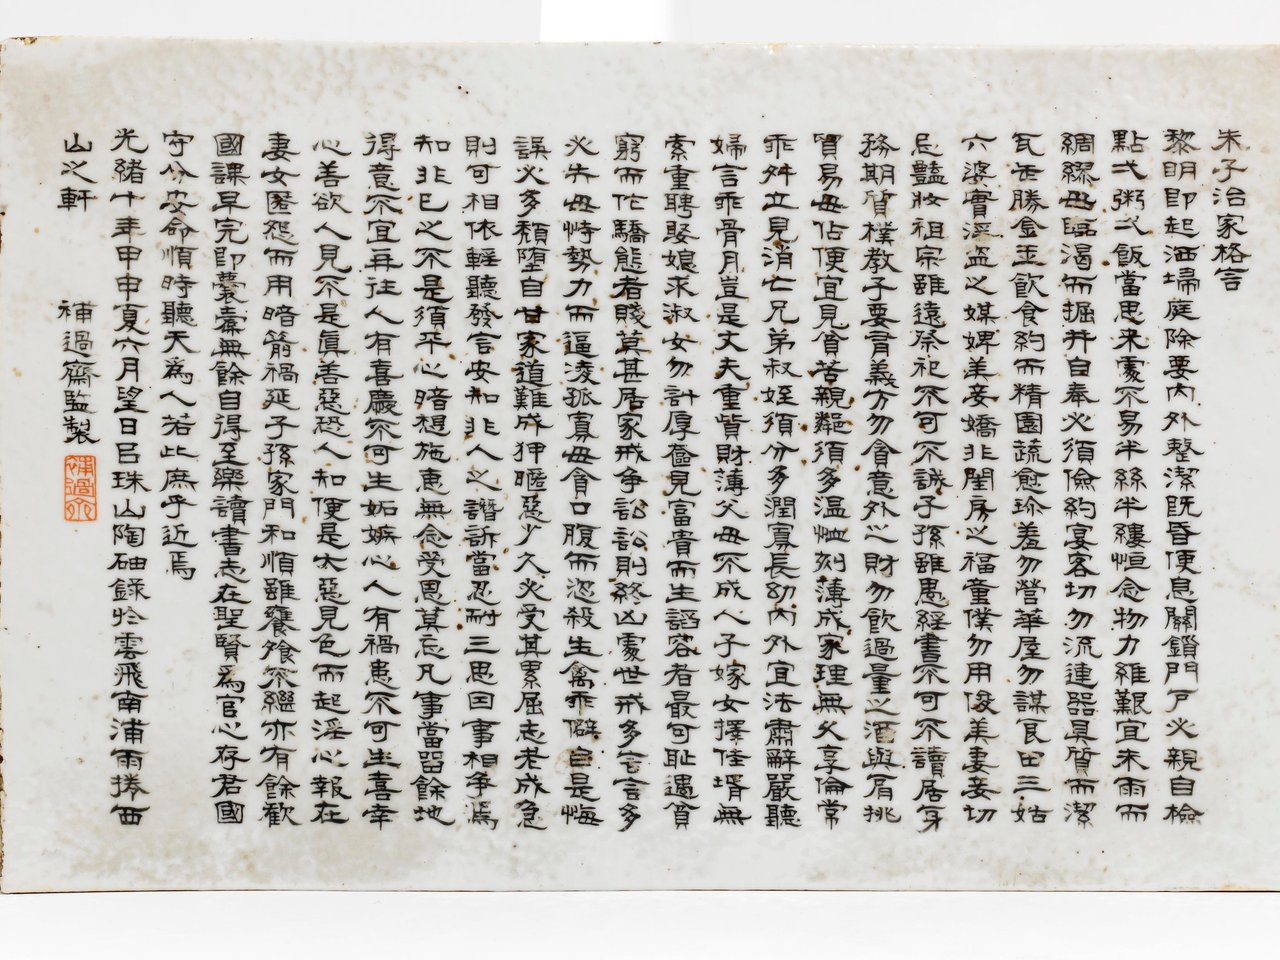 朱子治家格言
黎明即起洒埽庭除要內外整潔既昏便息關鎖門戶必親自檢
點弌粥弌飯當思來處不易半絲半縷恒念物力維艱宜未雨而
綢繆毋臨渴而掘井自奉必須儉約宴客切勿流連器具質而潔
瓦缶勝金玉飲食約而精園蔬愈珍羞勿營華屋勿謀良田三姑
六婆實淫盜之媒婢美妾嬌非閨房之福童僕勿用俊美妻妾切
忌豔妝祖宗雖遠祭祀不可不誠子孫雖愚經書不可不讀居身
務期質樸教子要有義方勿貪意外之財勿飲過量之酒與肩挑
貿易毋佔便宜見貧苦親鄰須多温恤刻薄成家理無久享倫常
乖舛立見消亡兄弟叔姪須分多潤寡長幼內外宜法肅辭嚴聽
婦言乖骨月豈是丈夫重貲財薄父毋不成人子嫁女擇佳壻無
索重聘娶媳求淑女勿計厚奩見富貴而生諂容者最可恥遇貧
窮而作驕態者賤莫甚居家戒争訟訟則終凶處世戒多言言多
必失毋恃勢力而逼凌孤寡毋貪口腹而恣殺生禽乖僻自是悔
誤必多頹墮自甘家道難成狎暱惡少久必受其累屈志老成急
則可相依輕聽發言安知非人之譖訴當忍耐三思因事相争焉
知非己之不是須平心暗想施惠無念受恩莫忘凡事當留餘地
得意不宜再往人有喜慶不可生妬嫉心人有禍患不可生喜幸
心善欲人見不是眞善惡恐人知便是大惡見色而起淫心報在
妻女匿怨而用暗箭禍延子孫家門和順雖饔飧不繼亦有餘歡
國課早完即囊橐無餘自得至樂讀書志在聖賢爲官心存君國
守分安命順時聽天爲人若此庶乎近焉
光緒十年甲申夏六月望日呂珠山陶砷錄於雲飛南浦雨捲西
山之軒
補過齋監製